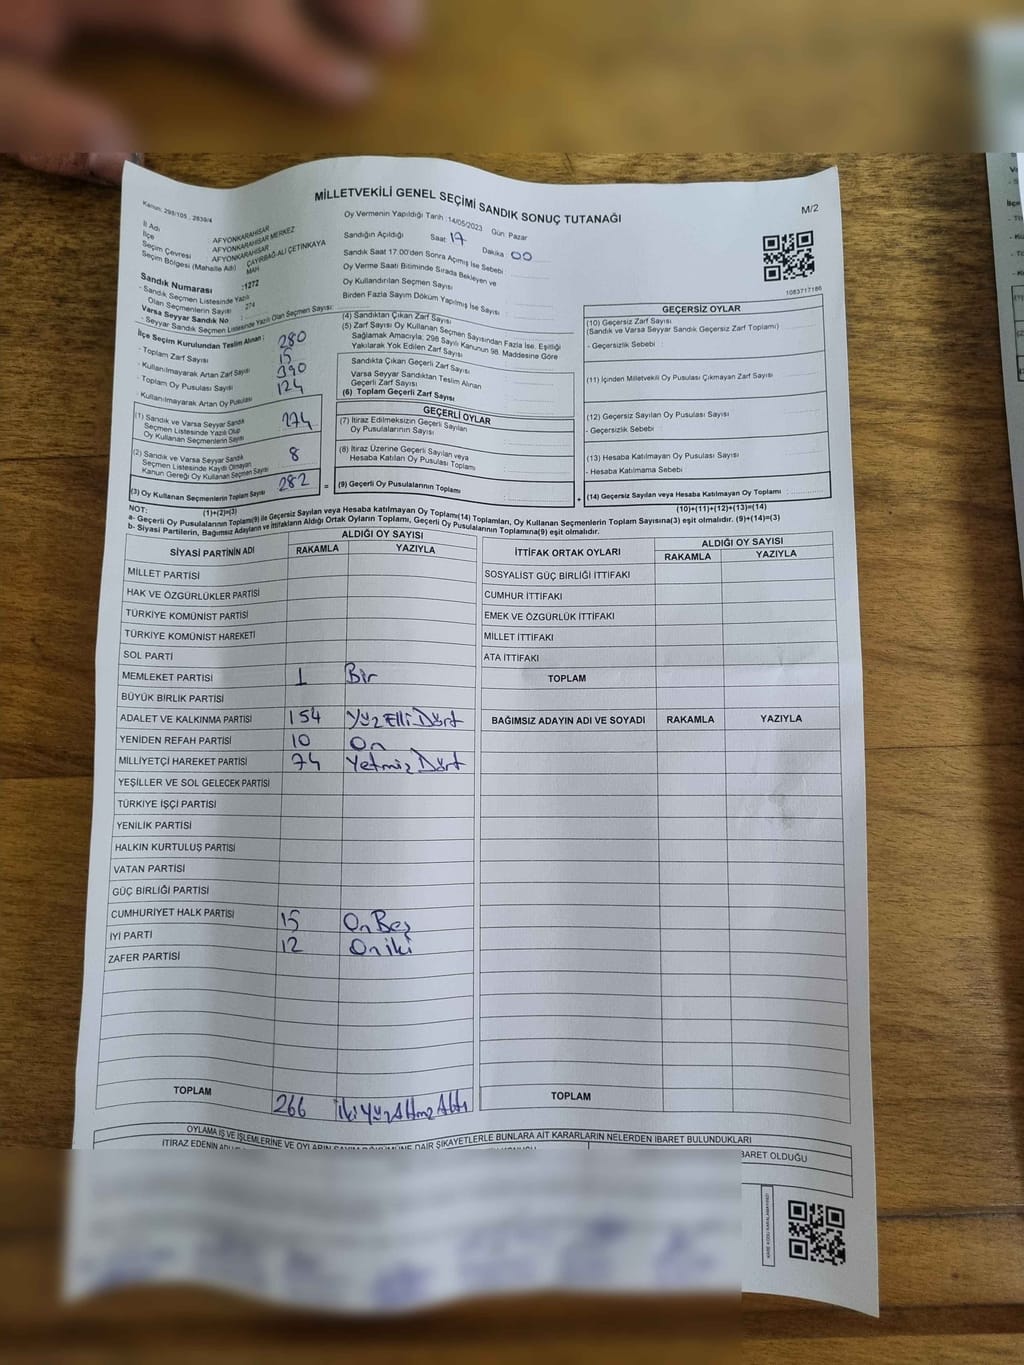 MİLLETVEKİLİ GENEL SEÇİMİ SANDIK SONUÇ TUTANAĞI
M/2
Kanun: 298/105 , 2839/4
İl Adı AFYONKARAHİSAR
İlçe AFYONKARAHİSAR MERKEZ
Seçim Çevresi AFYONKARAHİSAR
Seçim Bölgesi (Mahalle Adı) ÇAYIRBAĞ-ALİ ÇETİNKAYA MAH
Sandık Numarası :1272
- Sandık Seçmen Listesinde Yazılı
Olan Seçmenlerin Sayısı : 274
Varsa Seyyar Sandık No :
- Seyyar Sandık Seçmen Listesinde Yazılı Olan Seçmen Sayısı:
Oy Vermenin Yapıldığı Tarih :14/05/2023 Gün: Pazar
Sandığın Açıldığı Saat 17 Dakika 00
Sandık Saat 17:00'den Sonra Açılmış İse Sebebi
Oy Verme Saati Bitiminde Sırada Bekleyen ve
Oy Kullandırılan Seçmen Sayısı
Birden Fazla Sayım Döküm Yapılmış İse Sayısı :
1083717186
İlçe Seçim Kurulundan Teslim Alınan :
- Toplam Zarf Sayısı 280
- Kullanılmayarak Artan Zarf Sayısı 15
- Toplam Oy Pusulası Sayısı 390
- Kullanılmayarak Artan Oy Pusulası 124
(1) Sandık ve Varsa Seyyar Sandık
Seçmen Listesinde Yazılı Olup
Oy Kullanan Seçmenlerin Sayısı 274
(2) Sandık ve Varsa Seyyar Sandık
Seçmen Listesinde Kaydı Olmayan
Kanun Gereği Oy Kullanan Seçmen Sayısı 8
(3) Oy Kullanan Seçmenlerin Toplam Sayısı 282
(1)+(2)=(3)
(4) Sandıktan Çıkan Zarf Sayısı
(5) Zarf Sayısı Oy Kullanan Seçmen Sayısından Fazla İse, Eşitliği
Sağlamak Amacıyla, 298 Sayılı Kanunun 98. Maddesine Göre
Yakılarak Yok Edilen Zarf Sayısı
Sandıkta Çıkan Geçerli Zarf Sayısı
Varsa Seyyar Sandıktan Teslim Alınan
Geçerli Zarf Sayısı
(6) Toplam Geçerli Zarf Sayısı
GEÇERLİ OYLAR
(7) İtiraz Edilmeksizin Geçerli Sayılan
Oy Pusulalarının Sayısı
(8) İtiraz Üzerine Geçerli Sayılan veya
Hesaba Katılan Oy Pusulası Toplamı
= (9) Geçerli Oy Pusulalarının Toplamı
GEÇERSİZ OYLAR
(10) Geçersiz Zarf Sayısı
(Sandık ve Varsa Seyyar Sandık Geçersiz Zarf Toplamı)
- Geçersizlik Sebebi :
(11) İçinden Milletvekili Oy Pusulası Çıkmayan Zarf Sayısı
(12) Geçersiz Sayılan Oy Pusulası Sayısı
- Geçersizlik Sebebi :
(13) Hesaba Katılmayan Oy Pusulası Sayısı
- Hesaba Katılmama Sebebi
+ (14) Geçersiz Sayılan veya Hesaba Katılmayan Oy Toplamı :
(10)+(11)+(12)+(13)=(14)
NOT:
a- Geçerli Oy Pusulalarının Toplamı(9) ile Geçersiz Sayılan veya Hesaba katılmayan Oy Toplamı(14) Toplamları, Oy Kullanan Seçmenlerin Toplam Sayısına(3) eşit olmalıdır. (9)+(14)=(3)
b- Siyasi Partilerin, Bağımsız Adayların ve İttifakların Aldığı Ortak Oyların Toplamı, Geçerli Oy Pusulalarının Toplamına(9) eşit olmalıdır.
SİYASİ PARTİNİN ADI ALDIĞI OY SAYISI
RAKAMLA YAZIYLA
MİLLET PARTİSİ
HAK VE ÖZGÜRLÜKLER PARTİSİ
TÜRKİYE KOMÜNİST PARTİSİ
TÜRKİYE KOMÜNİST HAREKETİ
SOL PARTİ
MEMLEKET PARTİSİ 1 Bir
BÜYÜK BİRLİK PARTİSİ
ADALET VE KALKINMA PARTİSİ 154 Yüz Elli Dört
YENİDEN REFAH PARTİSİ 10 On
MİLLİYETÇİ HAREKET PARTİSİ 74 Yetmiz Dört
YEŞİLLER VE SOL GELECEK PARTİSİ
TÜRKİYE İŞÇİ PARTİSİ
YENİLİK PARTİSİ
HALKIN KURTULUŞ PARTİSİ
VATAN PARTİSİ
GÜÇ BİRLİĞİ PARTİSİ
CUMHURİYET HALK PARTİSİ 15 On Beş
İYİ PARTİ 12 On iki
ZAFER PARTİSİ
TOPLAM 266 İki Yüz Altmz Altı
İTTİFAK ORTAK OYLARI ALDIĞI OY SAYISI
RAKAMLA YAZIYLA
SOSYALİST GÜÇ BİRLİĞİ İTTİFAKI
CUMHUR İTTİFAKI
EMEK VE ÖZGÜRLÜK İTTİFAKI
MİLLET İTTİFAKI
ATA İTTİFAKI
TOPLAM
BAĞIMSIZ ADAYIN ADI VE SOYADI RAKAMLA YAZIYLA
TOPLAM
OYLAMA İŞ VE İŞLEMLERİNE VE OYLARIN SAYIM DÖKÜMÜNE DAİR ŞİKAYETLERLE BUNLARA AİT KARARLARIN NELERDEN İBARET BULUNDUKLARI
İTİRAZ EDENİN
BARET OLDUĞU